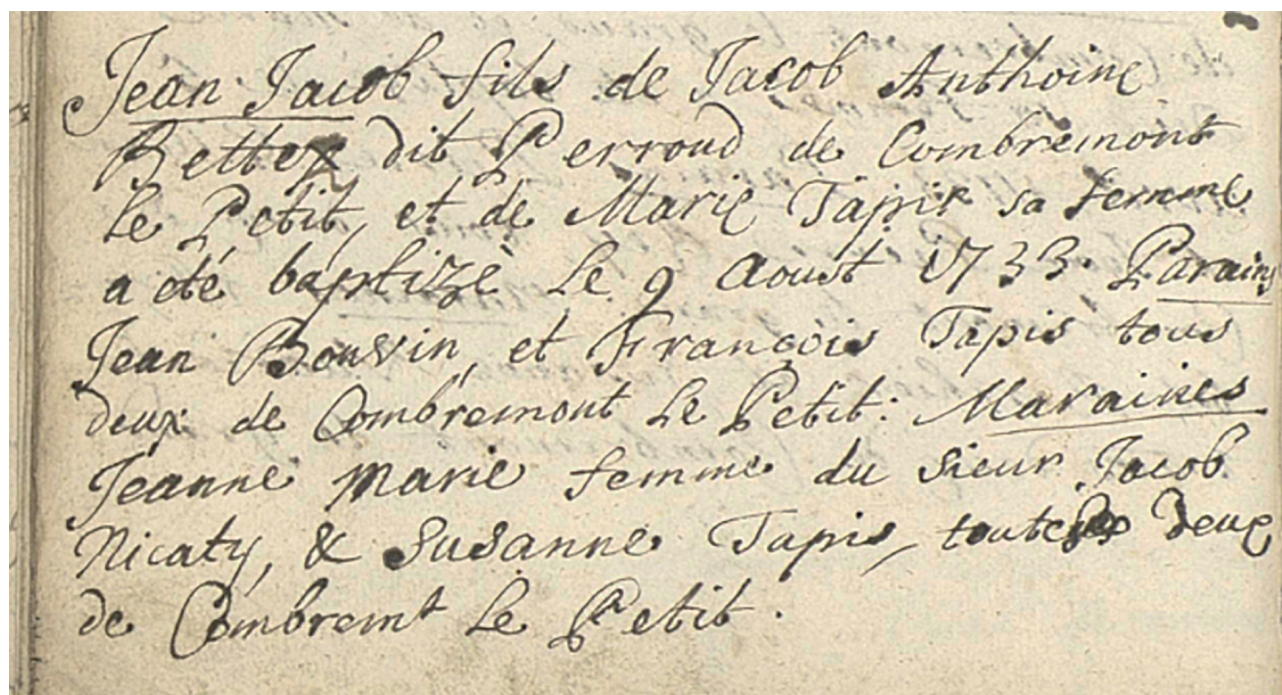 Jean Jacob fils de Jacob Anthoine
Bettex dit Perroud de Combremont
le Petit, et de Marie Tapis sa femme
a eté baptizé le 9 Aoust 1733. Parains
Jean Bouvin, et François Tapis tous
deux de Combremont le Petit: Maraines
Jeanne Marie femme du sieur Jacob
Nicaty, & Susanne Tapis, toutes deux
de Combremt le Petit.